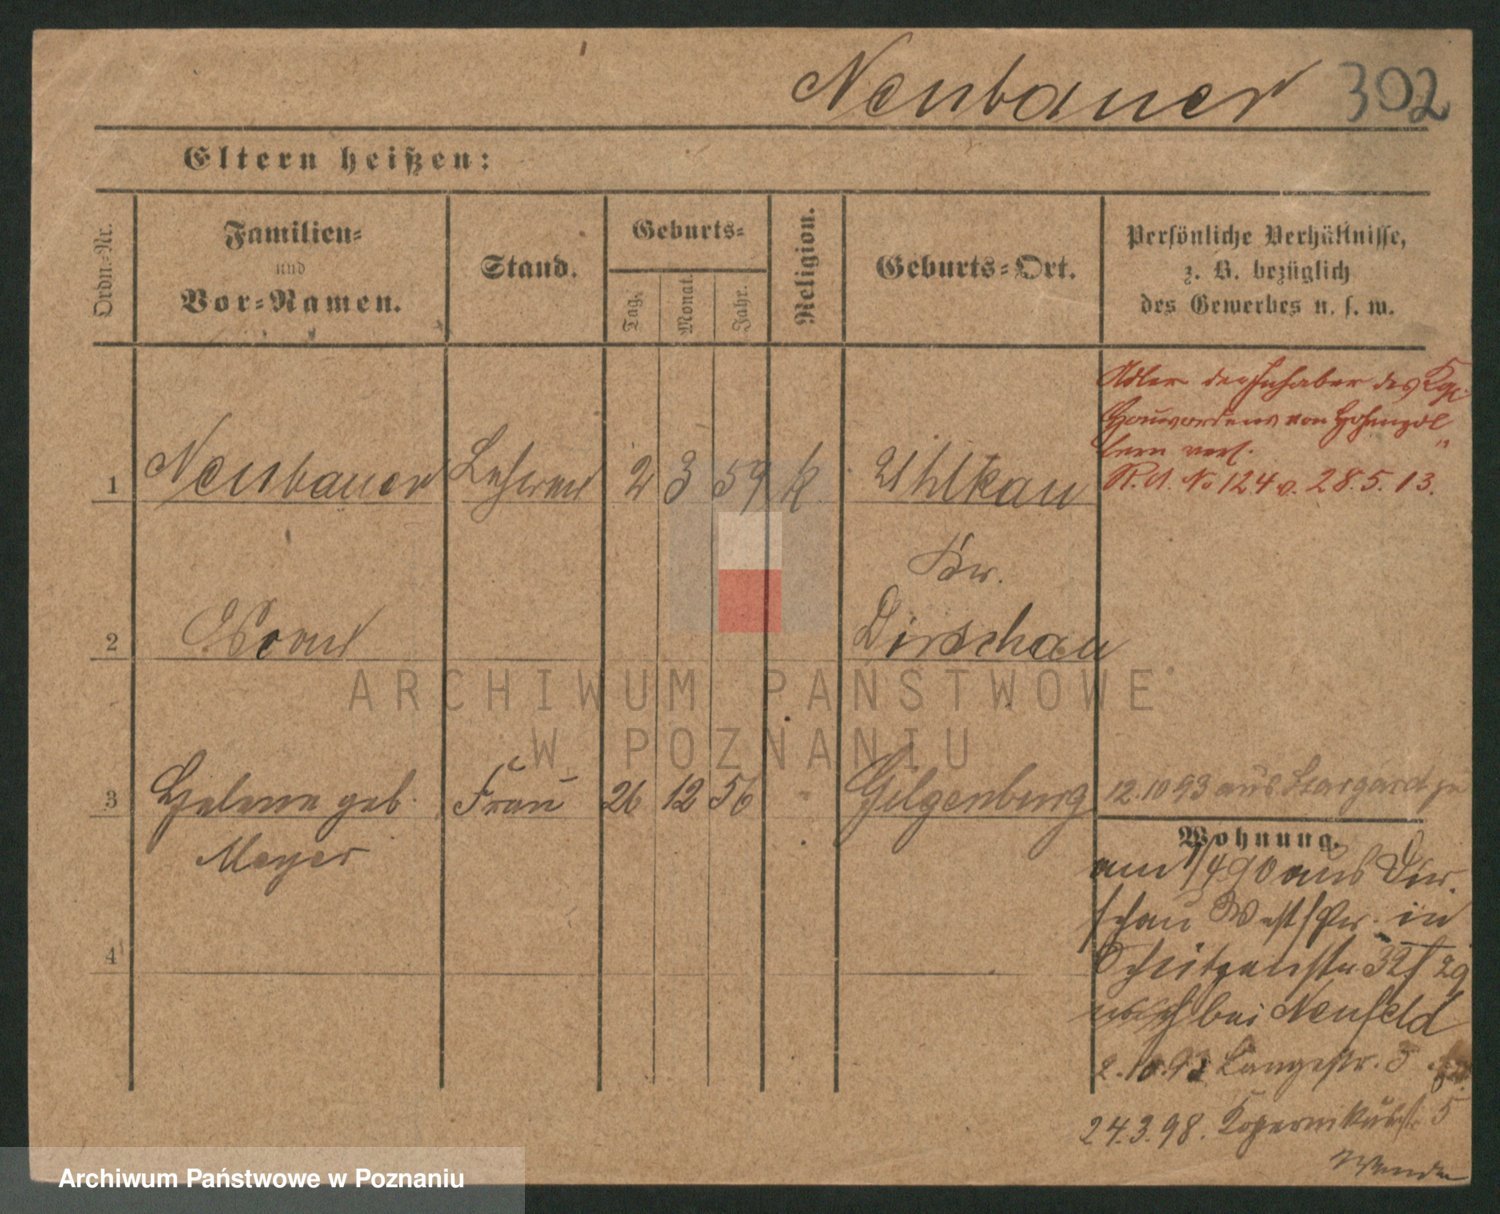 Neubauer 302
Eltern heißen:
Ordn-Nr.
Familien-
und
Vor-Namen.
Stand.
Geburts-
Tag.
Monat.
Jahr.
Religion.
Geburts-Ort.
Persönliche Verhältnisse,
z. B. bezüglich
des Gewerbes u. s. w.
Adler der Inhaber des Kgl.
Hausordens von Hohenzol
lern verl.
R. A. No 124 v. 28.5.13.
1 Neubauer Lehrer 2 3 59 k. Uhlkau
Kr.
2 Dirschau
3 Helene geb. Frau 26 12 56 Gilgenburg
Meyer
12.10 93 aus Stargard
Wohnung.
am 1/4 90 aus Dir-
schau WestPr. in
Schützenstr. 32
bei Neufeld
4
2.10.93 Langestr. 5
24.3.98. Kopernikusstr. 5
Wenden
ARCHIWUM PAŃSTWOWE
W POZNANIU
Archiwum Państwowe w Poznaniu